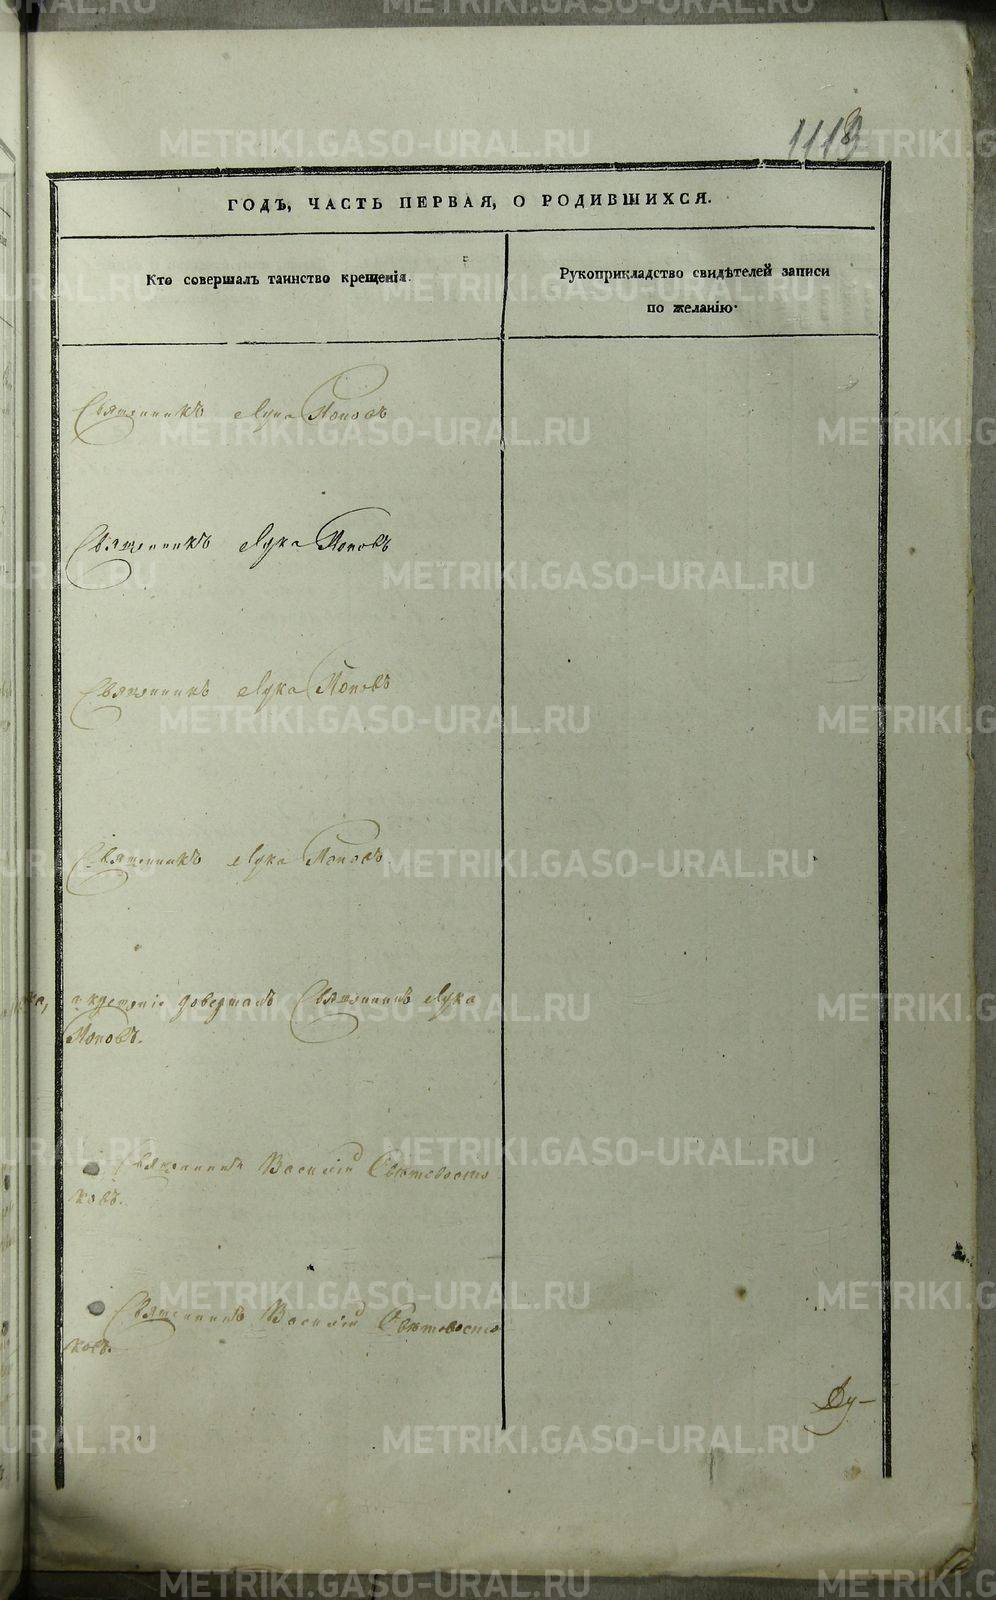 1113
ГОДЪ, ЧАСТЬ ПЕРВАЯ, О РОДИВШИХСЯ.
Кто совершалъ таинство крещенія.
Рукоприкладство свидѣтелей записи
по желанію.
Священникъ Лука Поповъ
Священникъ Лука Поповъ
Священникъ Лука Поповъ
Священникъ Лука Поповъ
а крещеніе довершалъ Священникъ Лука
Поповъ.
Священникъ Василій Свѣтовосто
ковъ.
Священникъ Василій Свѣтовосто
ковъ.
Ду-
METRIKI.GASO-URAL.RU